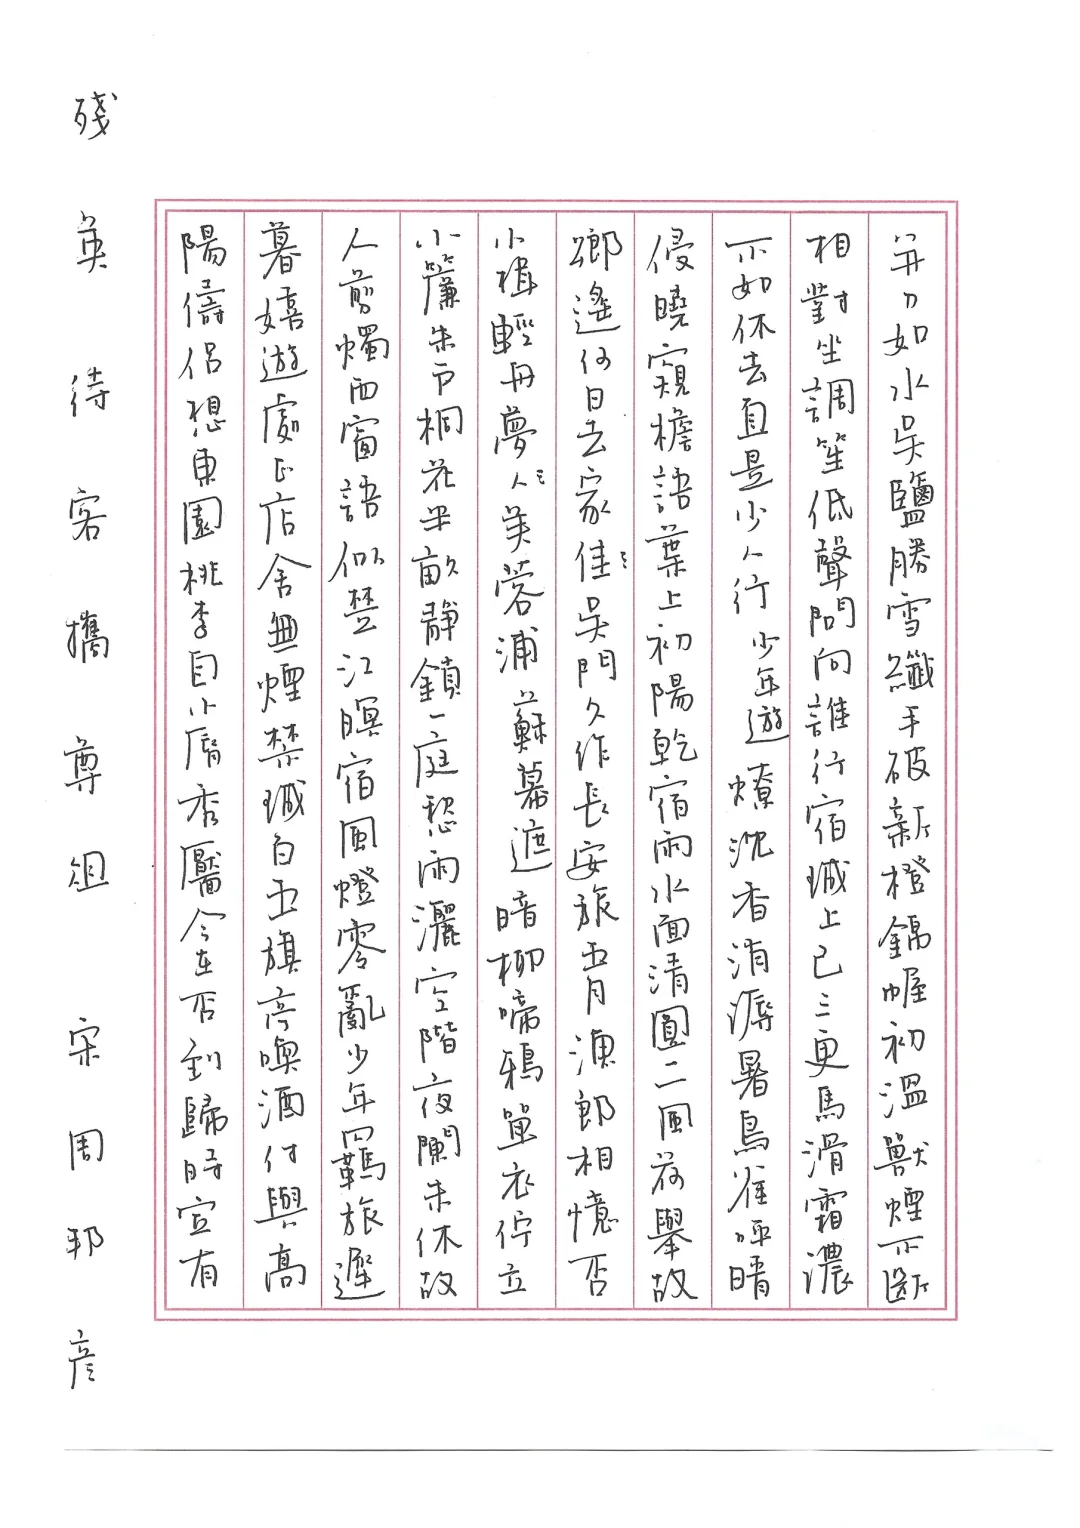 并刀如水吳鹽勝雪纖手破新橙錦幄初溫獸煙不斷
相對坐調笙低聲問向誰行宿城上已三更馬滑霜濃
不如休去直是少人行 少年遊 燎沈香消溽暑鳥雀呼晴
侵曉窺檐語葉上初陽乾宿雨水面清圓二風荷舉故
鄉遙何日去家住吳門久作長安旅五月漁郎相憶否
小楫輕舟夢入芙蓉浦 蘇幕遮 暗柳啼鴉單衣佇立
小簾朱戶桐花半畝靜鎖一庭愁雨灑空階夜闌未休故
人剪燭西窗語似楚江暝宿風燈零亂少年羈旅遲
暮嬉遊處正店舍無煙禁城百五旗亭喚酒付與高
陽儔侶想東園桃李自小脣秀靨今在否到歸時定有
殘英待客攜尊俎 宋周邦彥